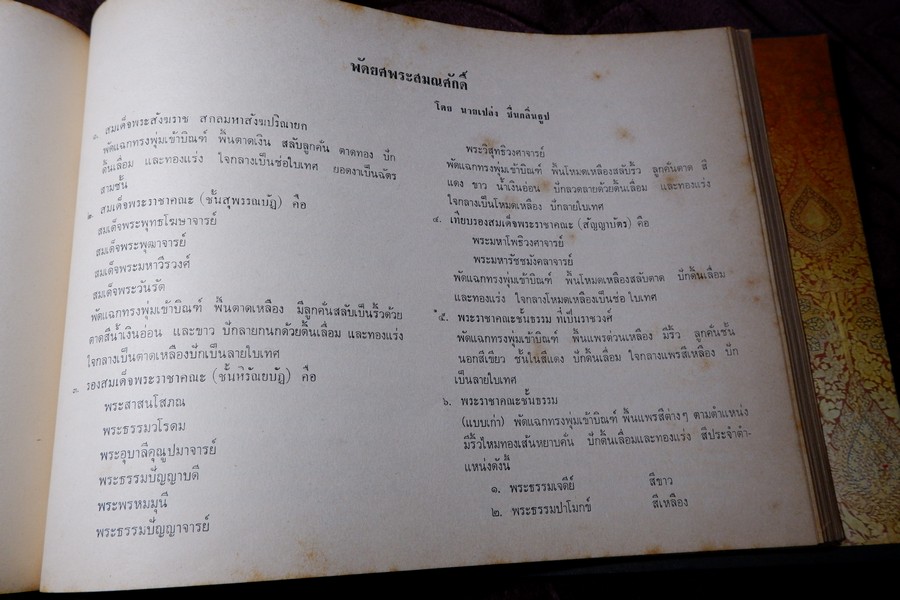 พัดยศพระสมณศักดิ์
โดย นายเปล่ง ชื่นกลิ่นธูป
๑. สมเด็จพระสังฆราช สกลมหาสังฆปริณายก
พัดแฉกทรงพุ่มเข้าบิณฑ์ พื้นตาดเงิน สลับลูกคั่น ตาดทอง ปัก
ดิ้นเลื่อม และทองแร่ง ใจกลางเป็นช่อใบเทศ ยอดงาเป็นฉัตร
สามชั้น
๒. สมเด็จพระราชาคณะ (ชั้นสุพรรณบัฏ) คือ
สมเด็จพระพุทธโฆษาจารย์
สมเด็จพระพุฒาจารย์
สมเด็จพระมหาวีรวงศ์
สมเด็จพระวันรัต
พัดแฉกทรงพุ่มเข้าบิณฑ์ พื้นตาดเหลือง มีลูกคั่นสลับเป็นริ้วด้วย
ตาดสีน้ำเงินอ่อน และขาว ปักลายกนกด้วยดิ้นเลื่อม และทองแร่ง
ใจกลางเป็นตาดเหลืองปักเป็นลายใบเทศ
๓. รองสมเด็จพระราชาคณะ (ชั้นหิรัณยบัฏ) คือ
พระสาสนโสภณ
พระธรรมวโรดม
พระอุบาลีคุณูปมาจารย์
พระธรรมปัญญาบดี
พระพรหมมุนี
พระธรรมปัญญาจารย์
พระวิสุทธิวงศาจารย์
พัดแฉกทรงพุ่มเข้าบิณฑ์ พื้นโหมดเหลืองสลับริ้ว ลูกคั่นตาด สี
แดง ขาว น้ำเงินอ่อน ปักลวดลายด้วยดิ้นเลื่อม และทองแร่ง
ใจกลางเป็นโหมดเหลือง ปักลายใบเทศ
๔. เทียบรองสมเด็จพระราชาคณะ (สัญญาบัตร) คือ
พระมหาโพธิวงศาจารย์
พระมหารัชชมังคลาจารย์
พัดแฉกทรงพุ่มเข้าบิณฑ์ พื้นโหมดเหลืองสลับตาด ปักดิ้นเลื่อม
และทองแร่ง ใจกลางโหมดเหลืองเป็นช่อ ใบเทศ
๕. พระราชาคณะชั้นธรรม ที่เป็นราชวงศ์
พัดแฉกทรงพุ่มเข้าบิณฑ์ พื้นแพรต่วนเหลือง มีริ้ว ลูกคั่นชั้น
นอกสีเขียว ชั้นในสีแดง ปักดิ้นเลื่อม ใจกลางแพรสีเหลือง ปัก
เป็นลายใบเทศ
๖. พระราชาคณะชั้นธรรม
(แบบเก่า) พัดแฉกทรงพุ่มเข้าบิณฑ์ พื้นแพรสีต่างๆ ตามตำแหน่ง
มีริ้วไหมทองเส้นหยาบคั่น ปักดิ้นเลื่อมและทองแร่ง สีประจำตำ-
แหน่งดังนี้
๑. พระธรรมเจดีย์ สีขาว
๒. พระธรรมปาโมกข์ สีเหลือง